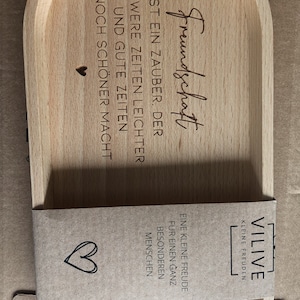 Freundschaft
IST EIN ZAUBER, DER
WERE ZEITEN LEICHTER
UND GUTE ZEITEN
NOCH SCHÖNER MACHT
VILIVE
KLEINE FREUDEN
EINE KLEINE FREUDE
FÜR EINEN GANZ
BESONDEREN
MENSCHEN